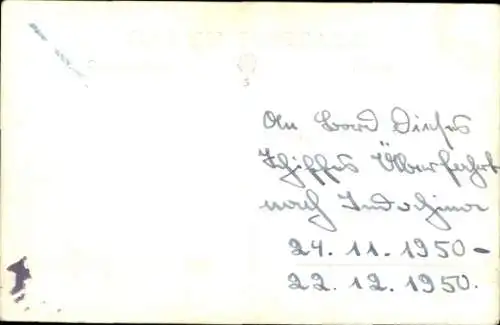 An Bord Dieses
Schiffes Überfahrt
nach Indochina
24. 11. 1950 -
22. 12. 1950.